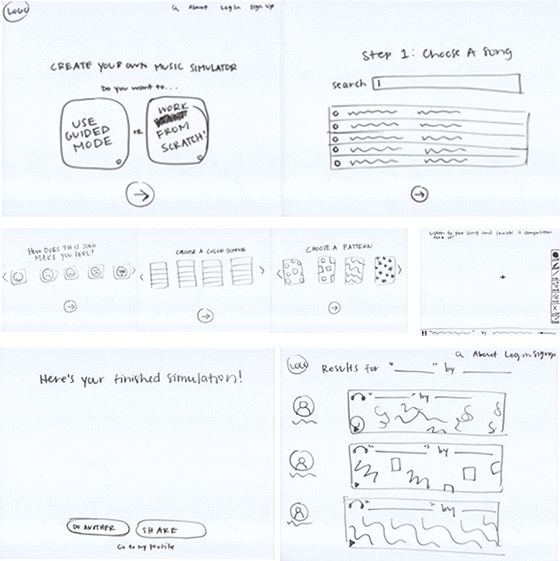 LOGO
About Log In Sign Up
CREATE YOUR OWN MUSIC SIMULATOR
Do you want to...
USE GUIDED MODE
OR
WORK FROM SCRATCH!
Step 1: Choose A Song
search
HOW DOES THIS SONG MAKE YOU FEEL?
CHOOSE A COLOR SCHEME
CHOOSE A PATTERN
Listen to your song and
by
Here's your finished simulation!
DO ANOTHER
SHARE
Go to my profile
LOGO
About Log in Sign up
RESULTS for "______" by ______
"______" by ______
"______" by ______
"______" by ______